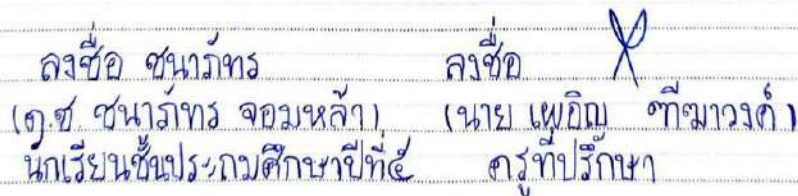 ลงชื่อ ชนาภัทร ลงชื่อ
(ด.ช. ชนาภัทร จอมหล้า) (นาย เผอิญ ฑีฆาวงค์)
นักเรียนชั้นประถมศึกษาปีที่๕ ครูที่ปรึกษา